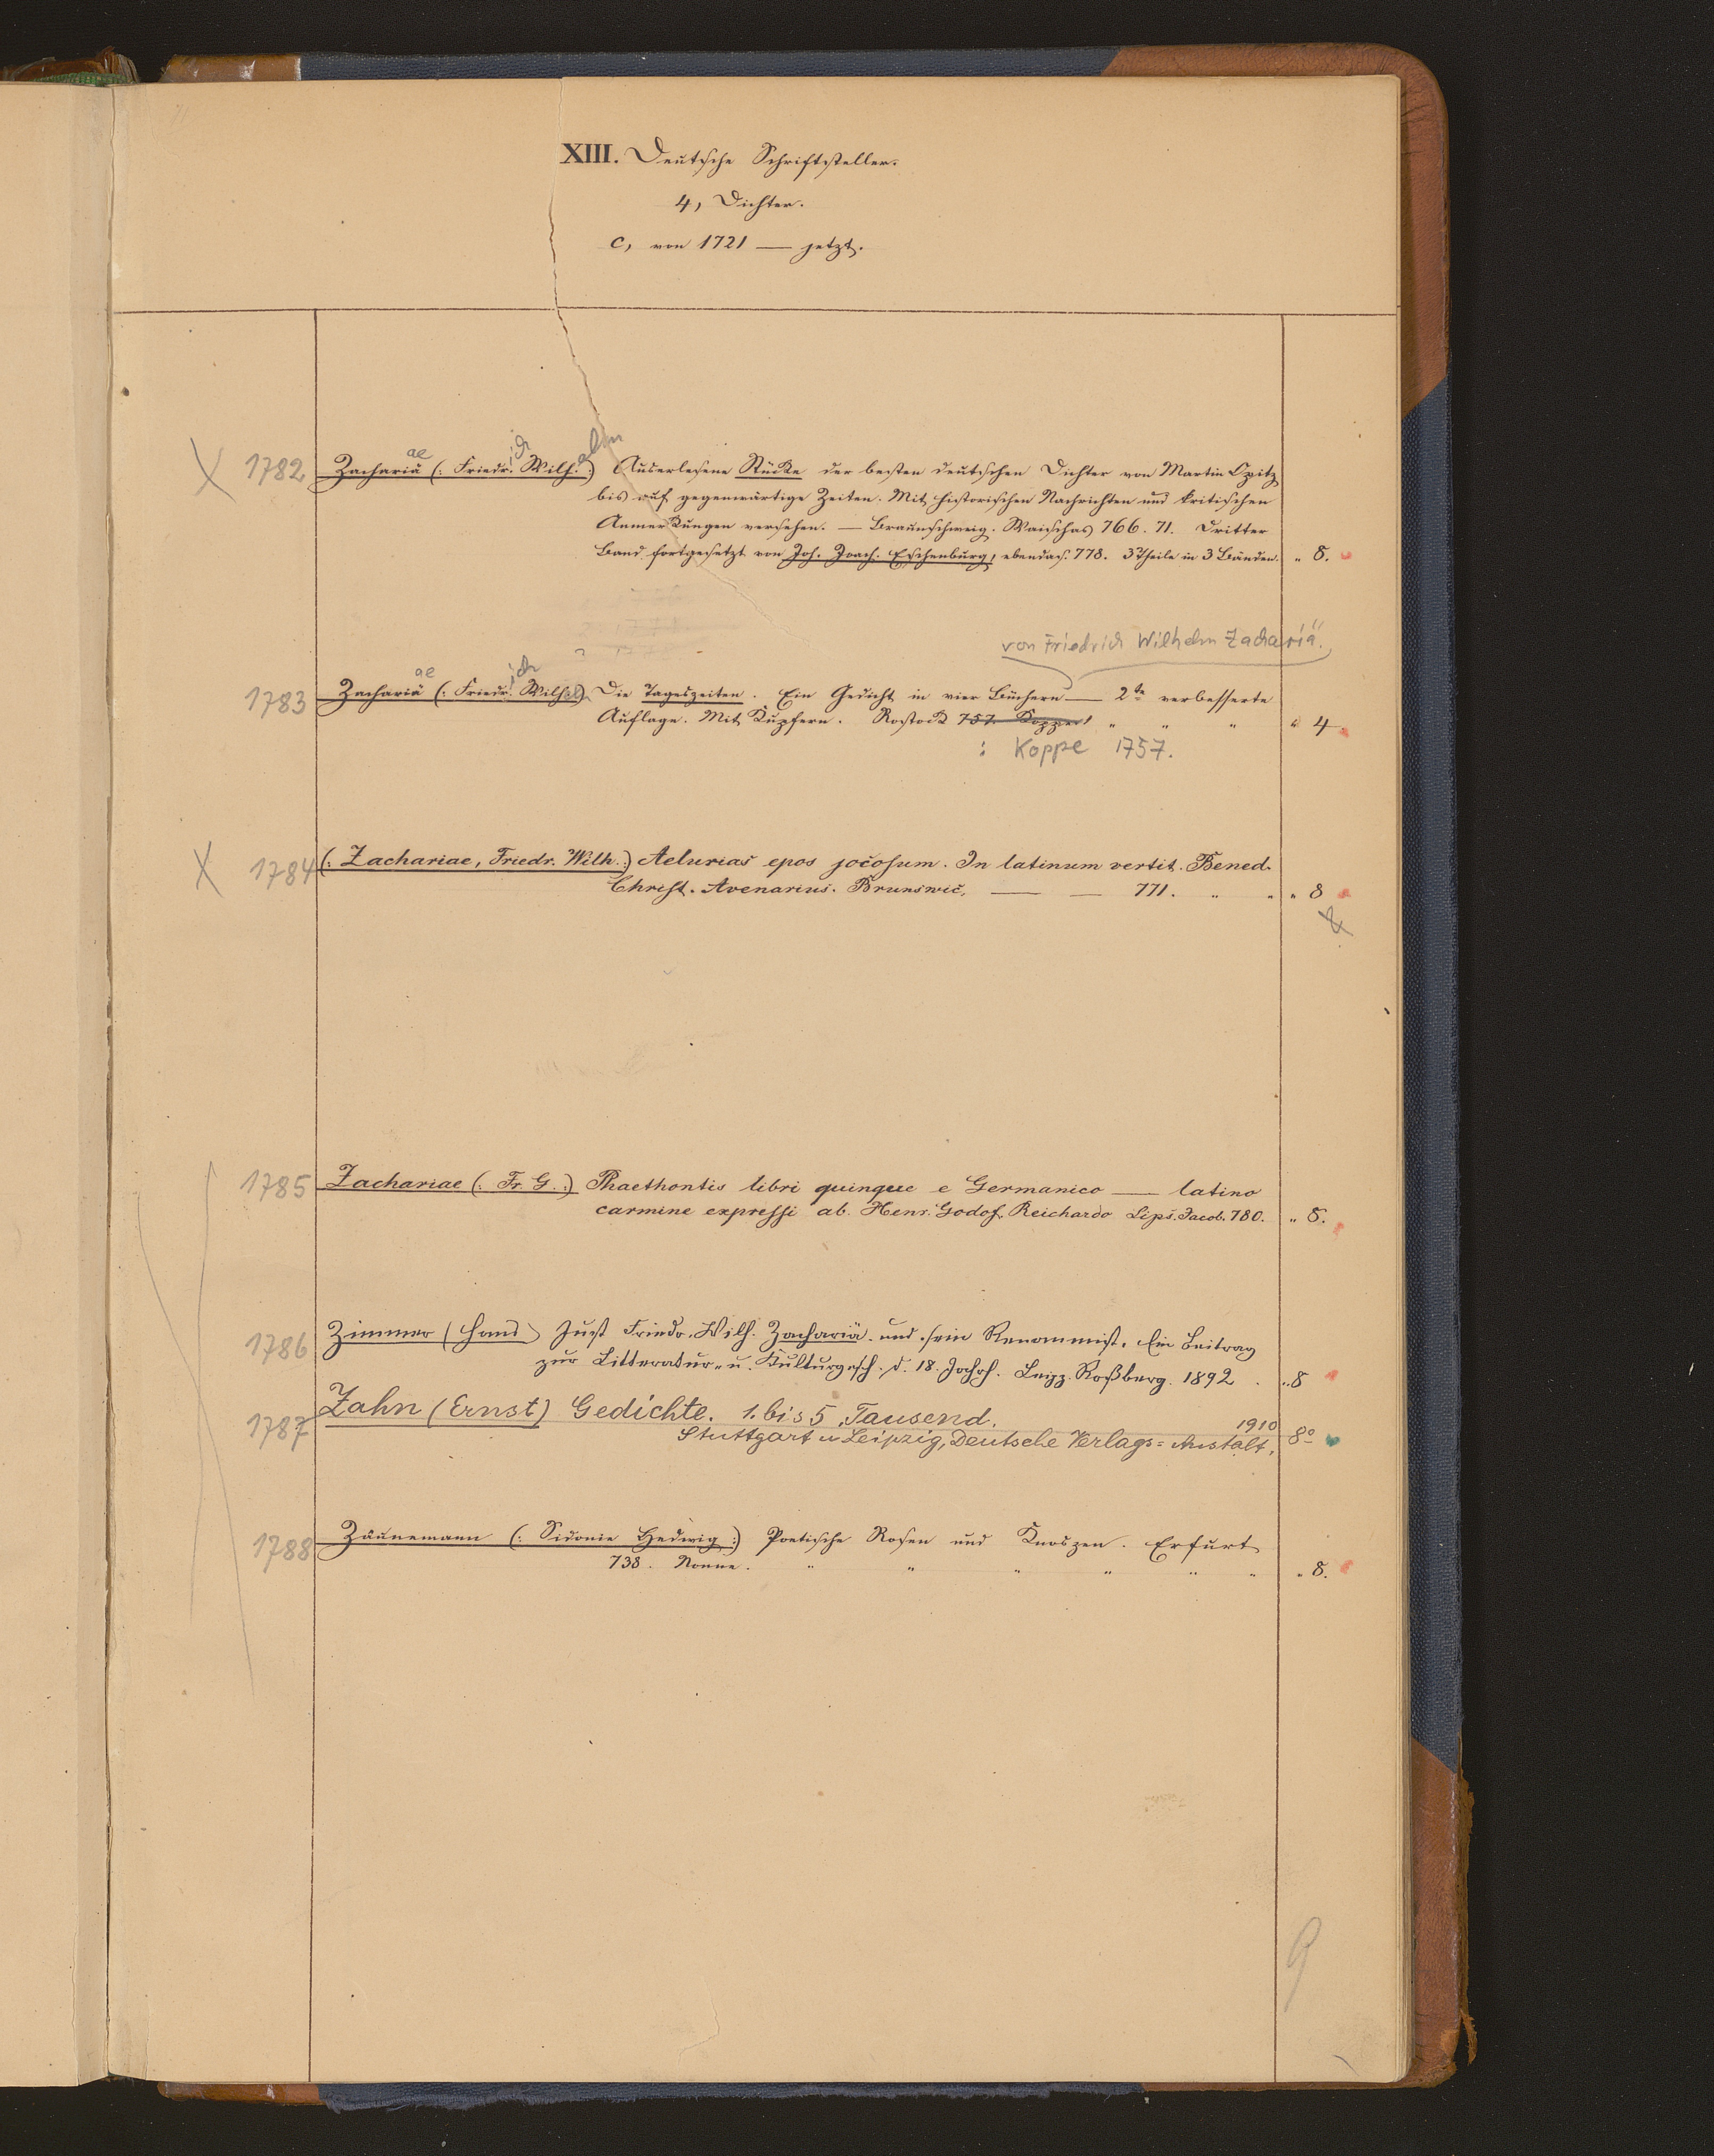 XIII. Deutsche Schriftsteller.
4, Dichter.
c, von 1721 — jetzt.
ae ich elm
X 1782 Zachariä (: Friedr. Wilh. :) Auserlesene Stücke der besten deutschen Dichter von Martin Opitz
bis auf gegenwärtige Zeiten. Mit historischen Nachrichten und kritischen
Anmerkungen versehen. — Braunschweig. Waisenhs 766. 71. Dritter
Band fortgesetzt von Joh. Joach. Eschenburg, ebendas. 778. 3 Theile in 3 Bänden. " 8.
von Friedrich Wilhelm Zachariä.
ae ich
1783 Zachariä (: Friedr. Wilh. :) Die Tageszeiten. Ein Gedicht in vier Büchern — 2te verbesserte
Auflage. Mit Kupfern. Rostock 757. Koppe " " " " 4
: Koppe 1757.
X 1784 (: Zachariae, Friedr. Wilh. :) Aelurias epos jocosum. In latinum vertit. Bened.
Christ. Avenarius. Brunswic. — — 771. " " " 8
1785 Zachariae (: Fr. G. :) Phaethontis libri quinque e Germanico — latino
carmine expressi ab. Henr. Godof. Reichardo Lips. Jacob. 780. " 8.
1786 Zimmer (Hans) Just Friedr. Wilh. Zachariä und sein Renommist. Ein Beitrag
zur Litteratur- u. Kulturgesch. d. 18. Jahrh. Leipz. Roßberg. 1892 . " 8
1787 Zahn (Ernst) Gedichte. 1. bis 5. Tausend.
1910
Stuttgart u Leipzig, Deutsche Verlags=Anstalt, 8°
1788 Zäunemann (: Sidonie Hedwig :) Poetische Rosen und Knospen. Erfurt
738. Nonne. " " " " " " " 8.
9